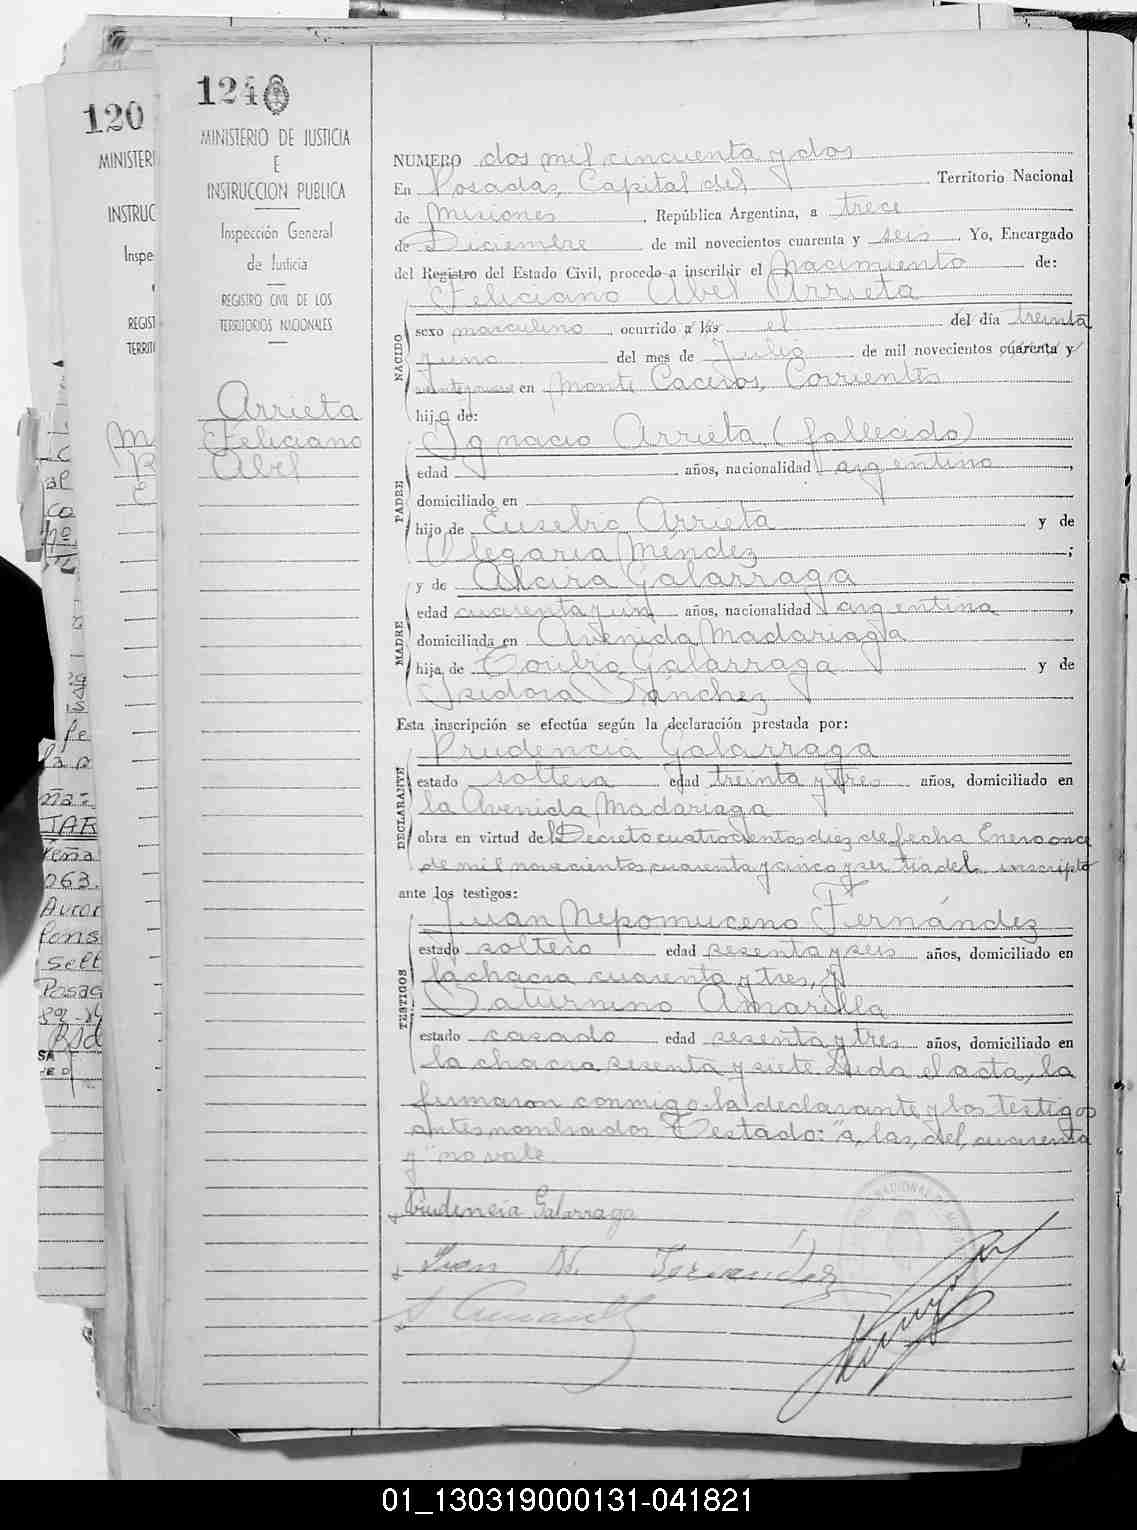 124
120
MINISTERIO DE JUSTICIA
E
INSTRUCCION PUBLICA
Inspección General
de Justicia
REGISTRO CIVIL DE LOS
TERRITORIOS NACIONALES
MINISTERI
INSTRUC
Inspe
REGIST
TERRIT
Arrieta
Feliciano
Abel
NUMERO dos mil cincuenta y dos
En Posadas, Capital del Territorio Nacional
de Misiones, República Argentina, a trece
de Diciembre de mil novecientos cuarenta y seis. Yo, Encargado
del Registro del Estado Civil, procedo a inscribir el Nacimiento de:
Feliciano Abel Arrieta
NACIDO
sexo masculino, ocurrido a las el del día treinta
y uno del mes de Julio de mil novecientos cuarenta y
en Monte Caceros, Corrientes
hijo de:
Ignacio Arrieta, (fallecido)
PADRE
edad años, nacionalidad argentino,
domiciliado en
hijo de Eusebio Arrieta y de
Olegaria Méndez;
y de Alcira Galarraga
MADRE
edad cuarenta y un años, nacionalidad argentina,
domiciliada en Avenida Madariaga
hija de Toribio Galarraga y de
Isidora Sánchez
Esta inscripción se efectúa según la declaración prestada por:
Prudencia Galarraga
DECLARANTE
estado soltera edad treinta y tres años, domiciliado en
la Avenida Madariaga
obra en virtud del Decreto cuatrocientos diez de fecha Enero once
de mil novecientos cuarenta y cinco y ser tia del inscripto
ante los testigos:
Juan Nepomuceno Fernández
TESTIGOS
estado soltero edad sesenta y seis años, domiciliado en
la chacra cuarenta y tres, y
Saturnino Amarilla
estado casado edad sesenta y tres años, domiciliado en
la chacra sesenta y siete Leida el acta, la
firmaron conmigo la declarante y los testigos
antes nombrados Testado: "a, las, del, cuarenta
y" no vale
Prudencia Galarraga
Juan N. Fernández
01_130319000131-041821